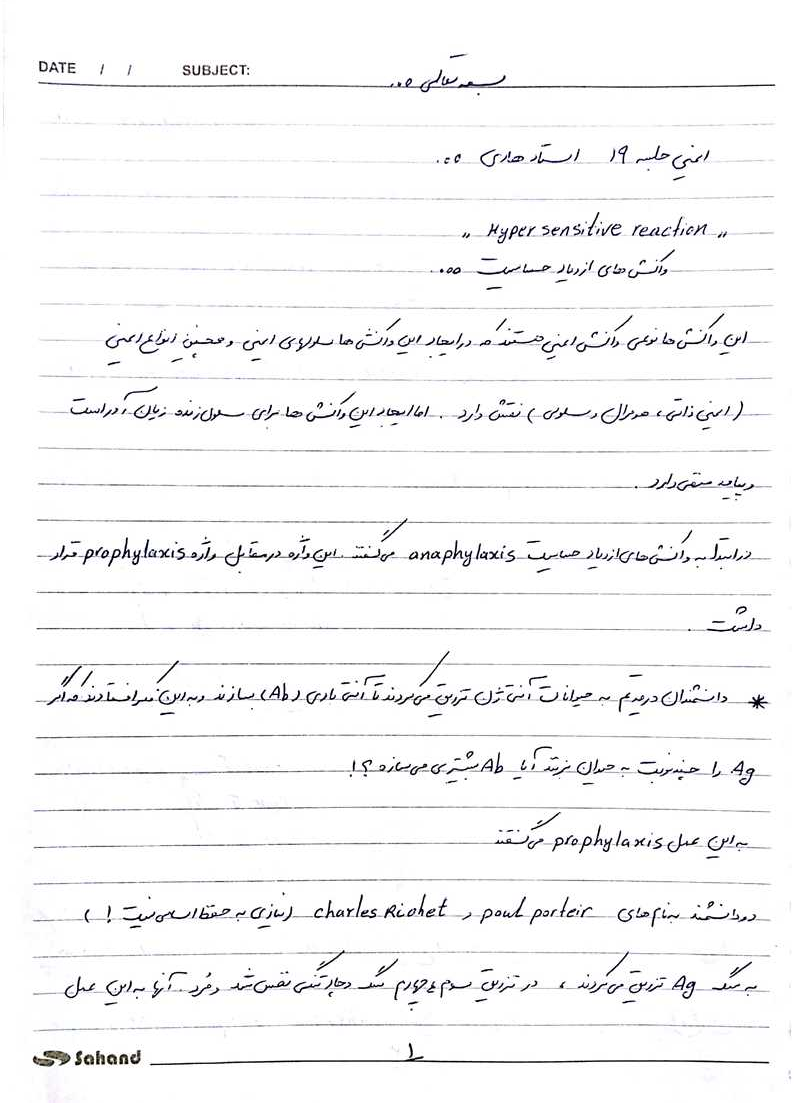 DATE / / SUBJECT:
بسمه تعالی ...
ایمنی جلسه ۱۹ استاد هادی ...
" Hyper sensitive reaction "
واکنش های ازدیاد حساسیت ...
این واکنش ها نوعی واکنش ایمنی هستند که در ایجاد این واکنش ها سلولهای ایمنی و همچنین انواع ایمنی
( ایمنی ذاتی ، هومرال و سلولی ) نقش دارد . اما ایجاد این واکنش ها برای سلول زنده زیان آور است
و پیامد منفی دارد .
در ابتدا به واکنش های ازدیاد حساسیت anaphylaxis می گفتند . این واژه در مقابل واژه prophylaxis قرار
داشت .
* دانشمندان در قدیم به حیوانات آنتی ژن تزریق می کردند تا آنتی بادی (Ab) بسازند و به این فکر افتادند که اگر
Ag را چند نوبت به حیوان بزنند آیا Ab بیشتری می سازد ؟!
به این عمل prophylaxis می گفتند
دو دانشمند بنام های poul porteir و charles Richet (نیازی به حفظ اسامی نیست ! )
به سگ Ag تزریق می کردند ، در تزریق سوم و چهارم سگ دچار تنگی نفس شد و مُرد . آنها به این عمل
Sahand
۱